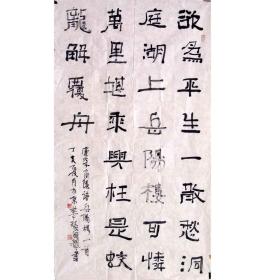 欲為平生一散愁洞
庭湖上岳陽樓可憐
萬里堪乘興枉是蛟
龍解覆舟
唐李商隱詩岳陽樓一首
丁亥夏月書